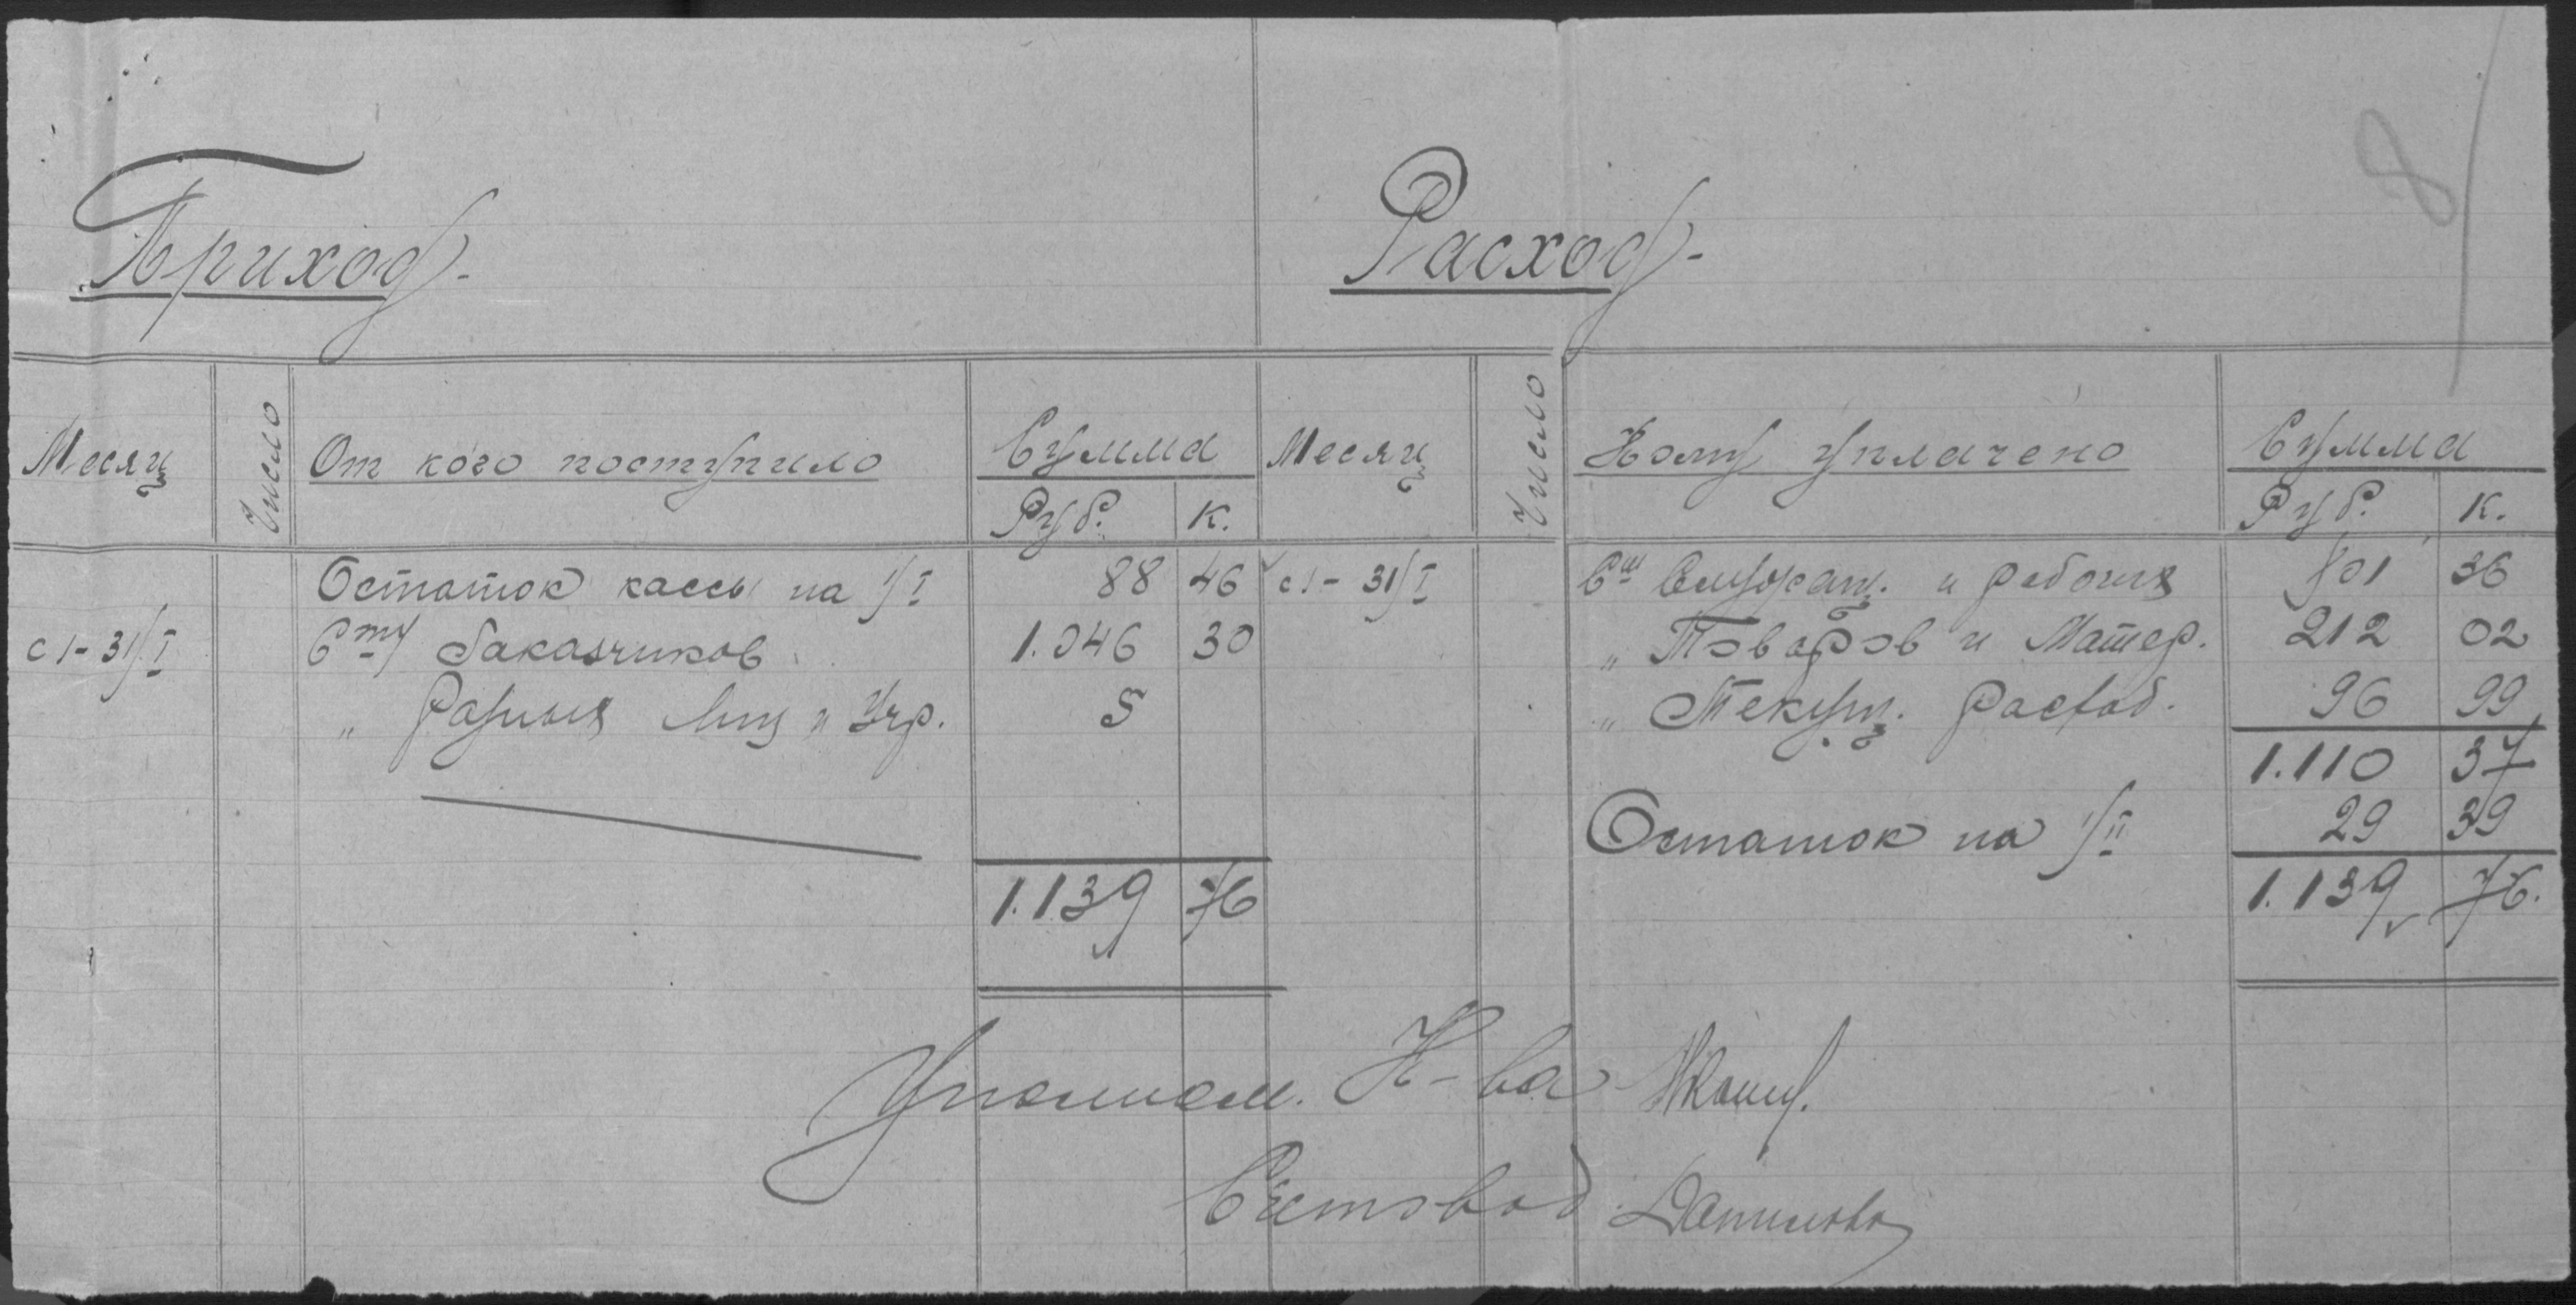 8
Приход.
Расход.
Месяц Число От кого поступило Сумма Месяц Число Кому уплачено Сумма
Руб. К. Руб. К.
Остаток кассы на 1/I 88 46 с 1 - 31/I Сч Служащ. и рабочих 801 36
с 1 - 31/I Сч Заказчиков 1.046 30 " Товаров и Матер. 212 02
" Разных Лиц и Учр. 5 " Текущ. Расход. 96 99
1.110 37
Остаток на 1/II 29 39
1.139 76 1.139 76.
Уполном. К-ва
Счетовод Данилова